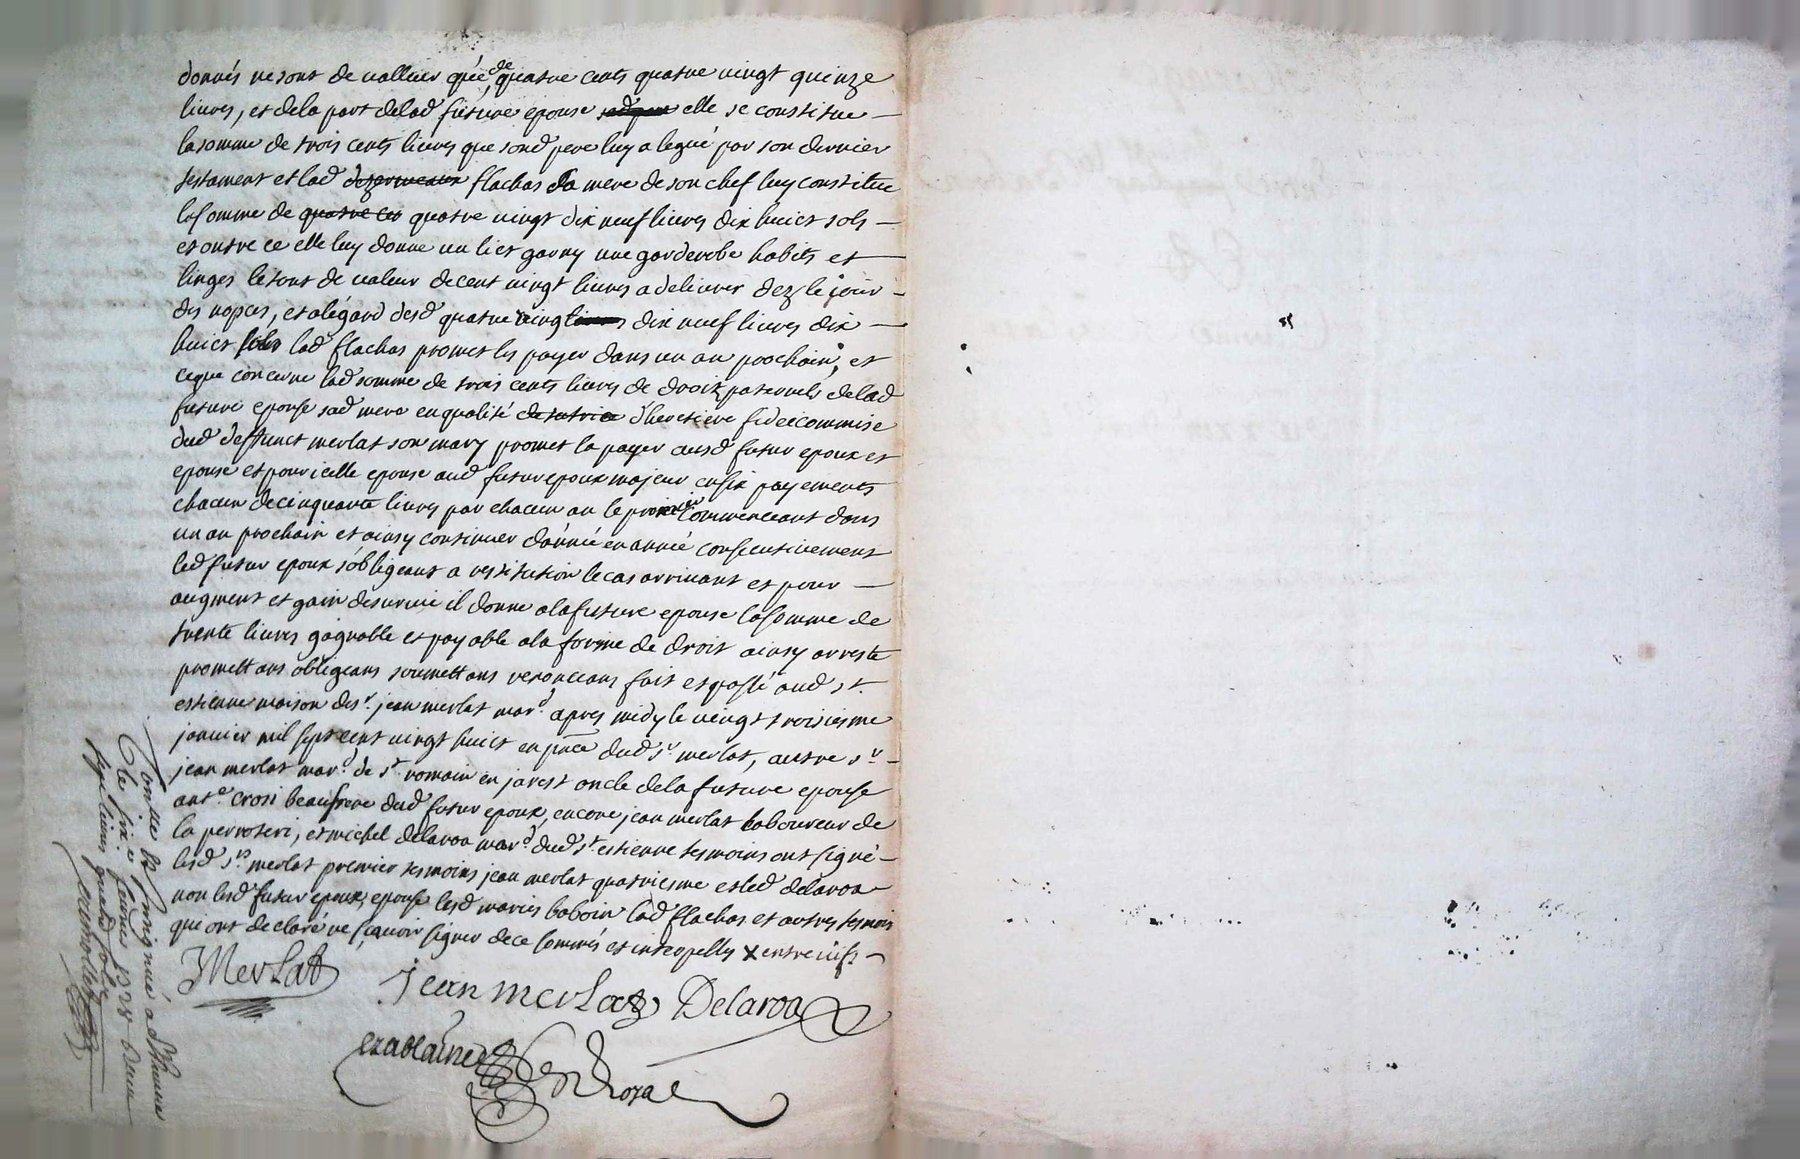 donnés ne sont de valleur que de quatre cents quatre vingt quinze
livres, et de la part de lad future epouse elle se constitue
la somme de trois cents livres que sond pere luy a legué par son dernier
testament et lad dezormeaux flachas sa mere de son chef luy constitue
la somme de quatre cen quatre vingt dix neuf livres dix huict sols
et outre ce elle luy donne un lict garny une garderobe habits et
linges le tout de valeur de cent vingt livres a delivrer dez le jour
des nopces, et a légard desd quatre vingt livres dix neuf livres dix
huict sols lad flachas promet les payer dans un an prochain, et
ce que concerne lad somme de trois cents livres de droits paternels de lad
future epouse sad mere en qualité de tutrice d'heretiere fideicommise
dud deffunct merlat son mary promet la payer ausd futur epoux et
epouse et pour icelle epouse aud futur epoux majeur en six payements
chacun de cinquante livres par chacun an le premier commenceant dans
un an prochain et ainsy continuer d'année en année consecutivement
led futur epoux s'obligeant a restitution le cas arrivant et pour
augment et gain de survie il donne a la future epouse la somme de
trente livres gagnable et payable a la forme de droit ainsy arresté
promettans obligeans soumettans renonceans fait et passé aud st.
estienne maison de sr. jean merlat mard. apres midy le vingt troisiesme
janvier mil sept cent vingt huict en pnce dud sr merlat, autre sr
jean merlat mard. de st romain en jarest oncle de la future epouse
ante crosi beaufrere dud futur epoux, encore jean merlat laboureur de
la perroteri, et michel delaroa mard. dud st estienne tesmoins ont signé
lesd srs merlat premier tesmoins jean merlat quatriesme et led delaroa
non lesd futur epoux, epouse lesd mariés baboin lad flachas et autres tesmoins
qui ont declaré ne sçavoir signer de ce sommés et interpellés X entre
JMerlat
jean merlat Delaroa
Controllé et insinué a St Etienne
le six fevrier 1728 Receu
six livres quatre sols